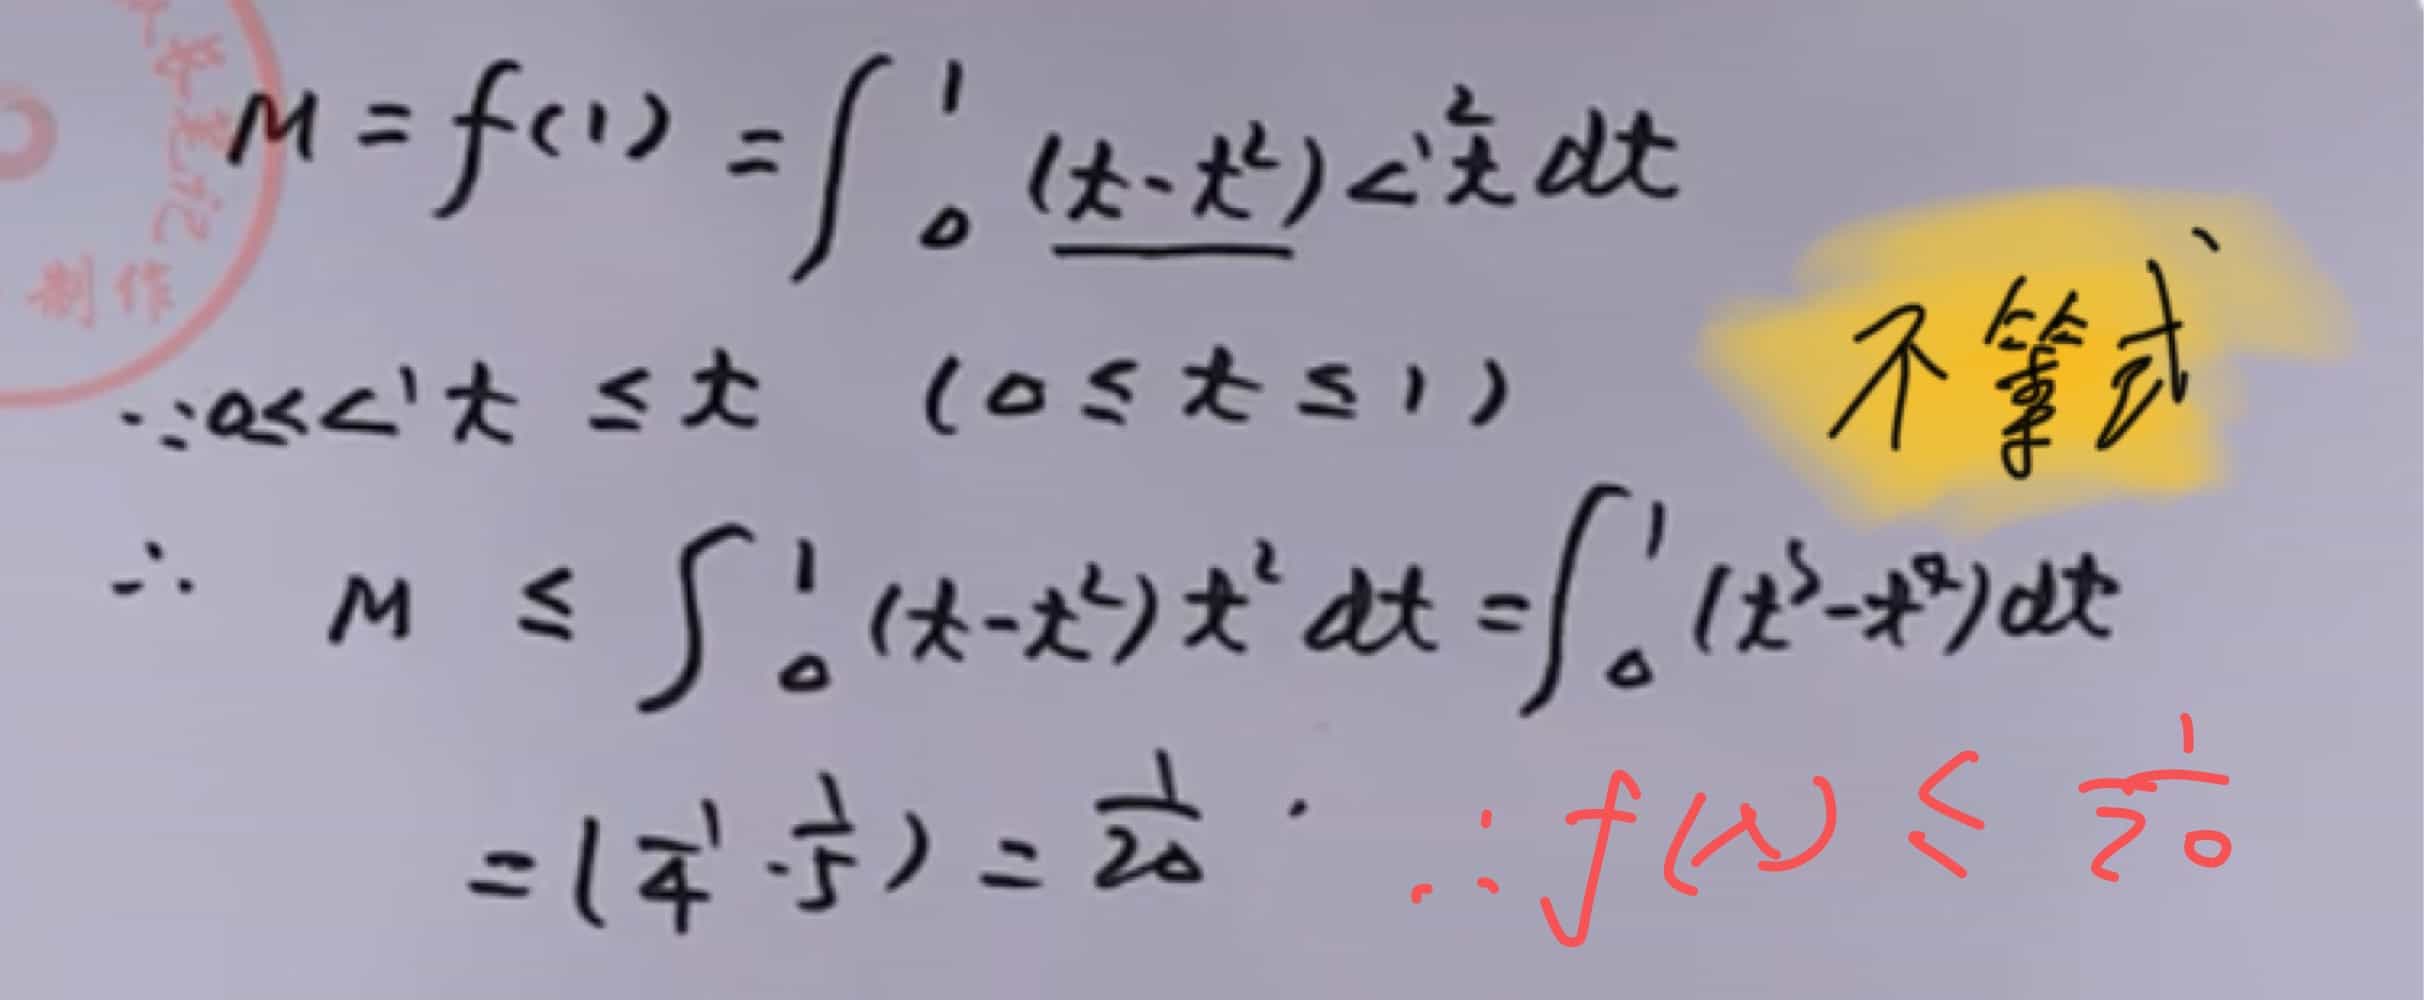 M = f(1) = ∫₀¹ (t - t²) <' ²t dt
不等式、
∵ 0 ≤ <' t ≤ t (0 ≤ t ≤ 1)
∴ M ≤ ∫₀¹ (t - t²) t² dt = ∫₀¹ (t³ - t⁴) dt
= (1/4 - 1/5) = 1/20 . ∴ f(x) ≤ 1/20
制作